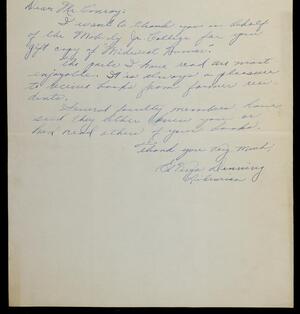 Dear Mr. Conroy:
I want to thank you in behalf
of the Moberly Jr. College for your
gift copy of "Midwest Humor."
The parts I have read are most
enjoyable. It is always a pleasure
to receive books from former resi-
dents.
Several faculty members have
said they either knew you or
had read others of your books.
Thank you very much,
Denning
Librarian